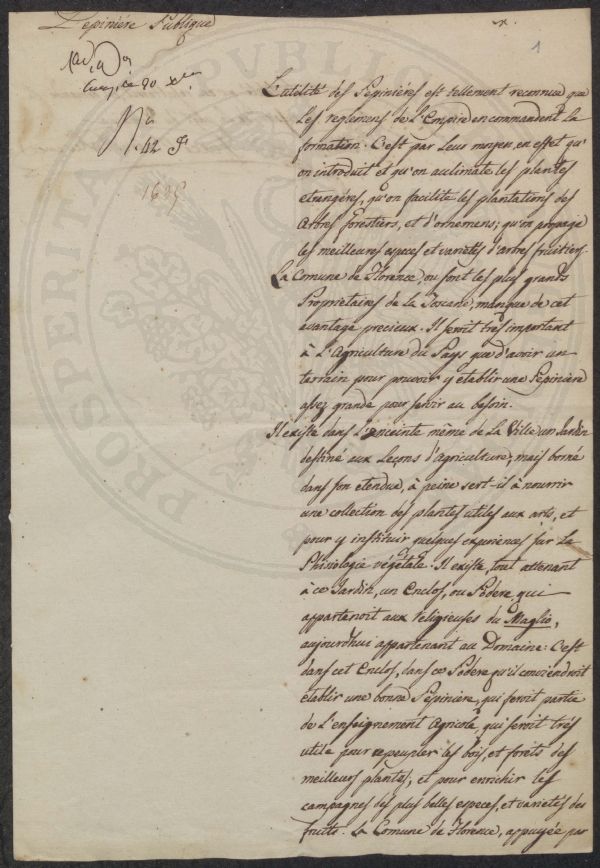 Pepiniére Publique
x.
1
N.o
42 F
1639
L'utilité des Pepiniéres est tellement reconnue que
les reglemens de L'Empire en commandent la
formation. C'est par leur moyen en effet qu'
on introduit et qu'on aclimate les plantes
etrangéres, qu'on facilite les plantations des
Arbres forestiers, et d'ornemens; qu'on propage
les meilleures especes et varietés d'arbres fruitiers.
La Comune de Florence, ou sont les plus grands
Proprietaires de la Toscane, manque de cet
avantage precieux. Il seroit trés important
à L'Agriculture du Pays que d'avoir un
terrain pour pouvoir y etablir une Pepiniére
assez grande pour servir au besoin.
Il existe dans l'enceinte même de La Ville un Jardin
destiné aux Leçons d'Agriculture, mais borné
dans son etendue, à peine sert-il à nourrir
une collection des plantes utiles aux arts, et
pour y instituir quelques experiences sur la
Phisiologie végétale. Il existe, tout attenant
à ce Jardin, un Enclos, ou Podere qui
appartenoit aux religieuses du Maglio,
aujourdhui appartenant au Domaine. C'est
dans cet Enclos, dans ce Podere qu'il conviendroit
etablir une bonne Pepiniére, qui seroit partie
de L'enseignement Agricole, qui seroit trés
utile pour repeupler les bois, et forêts des
meilleurs plantes, et pour enrichir les
campagnes des plus belles especes, et varietés des
fruits. La Comune de Florence, appuyée par
PVBLIC
PROSPERITA